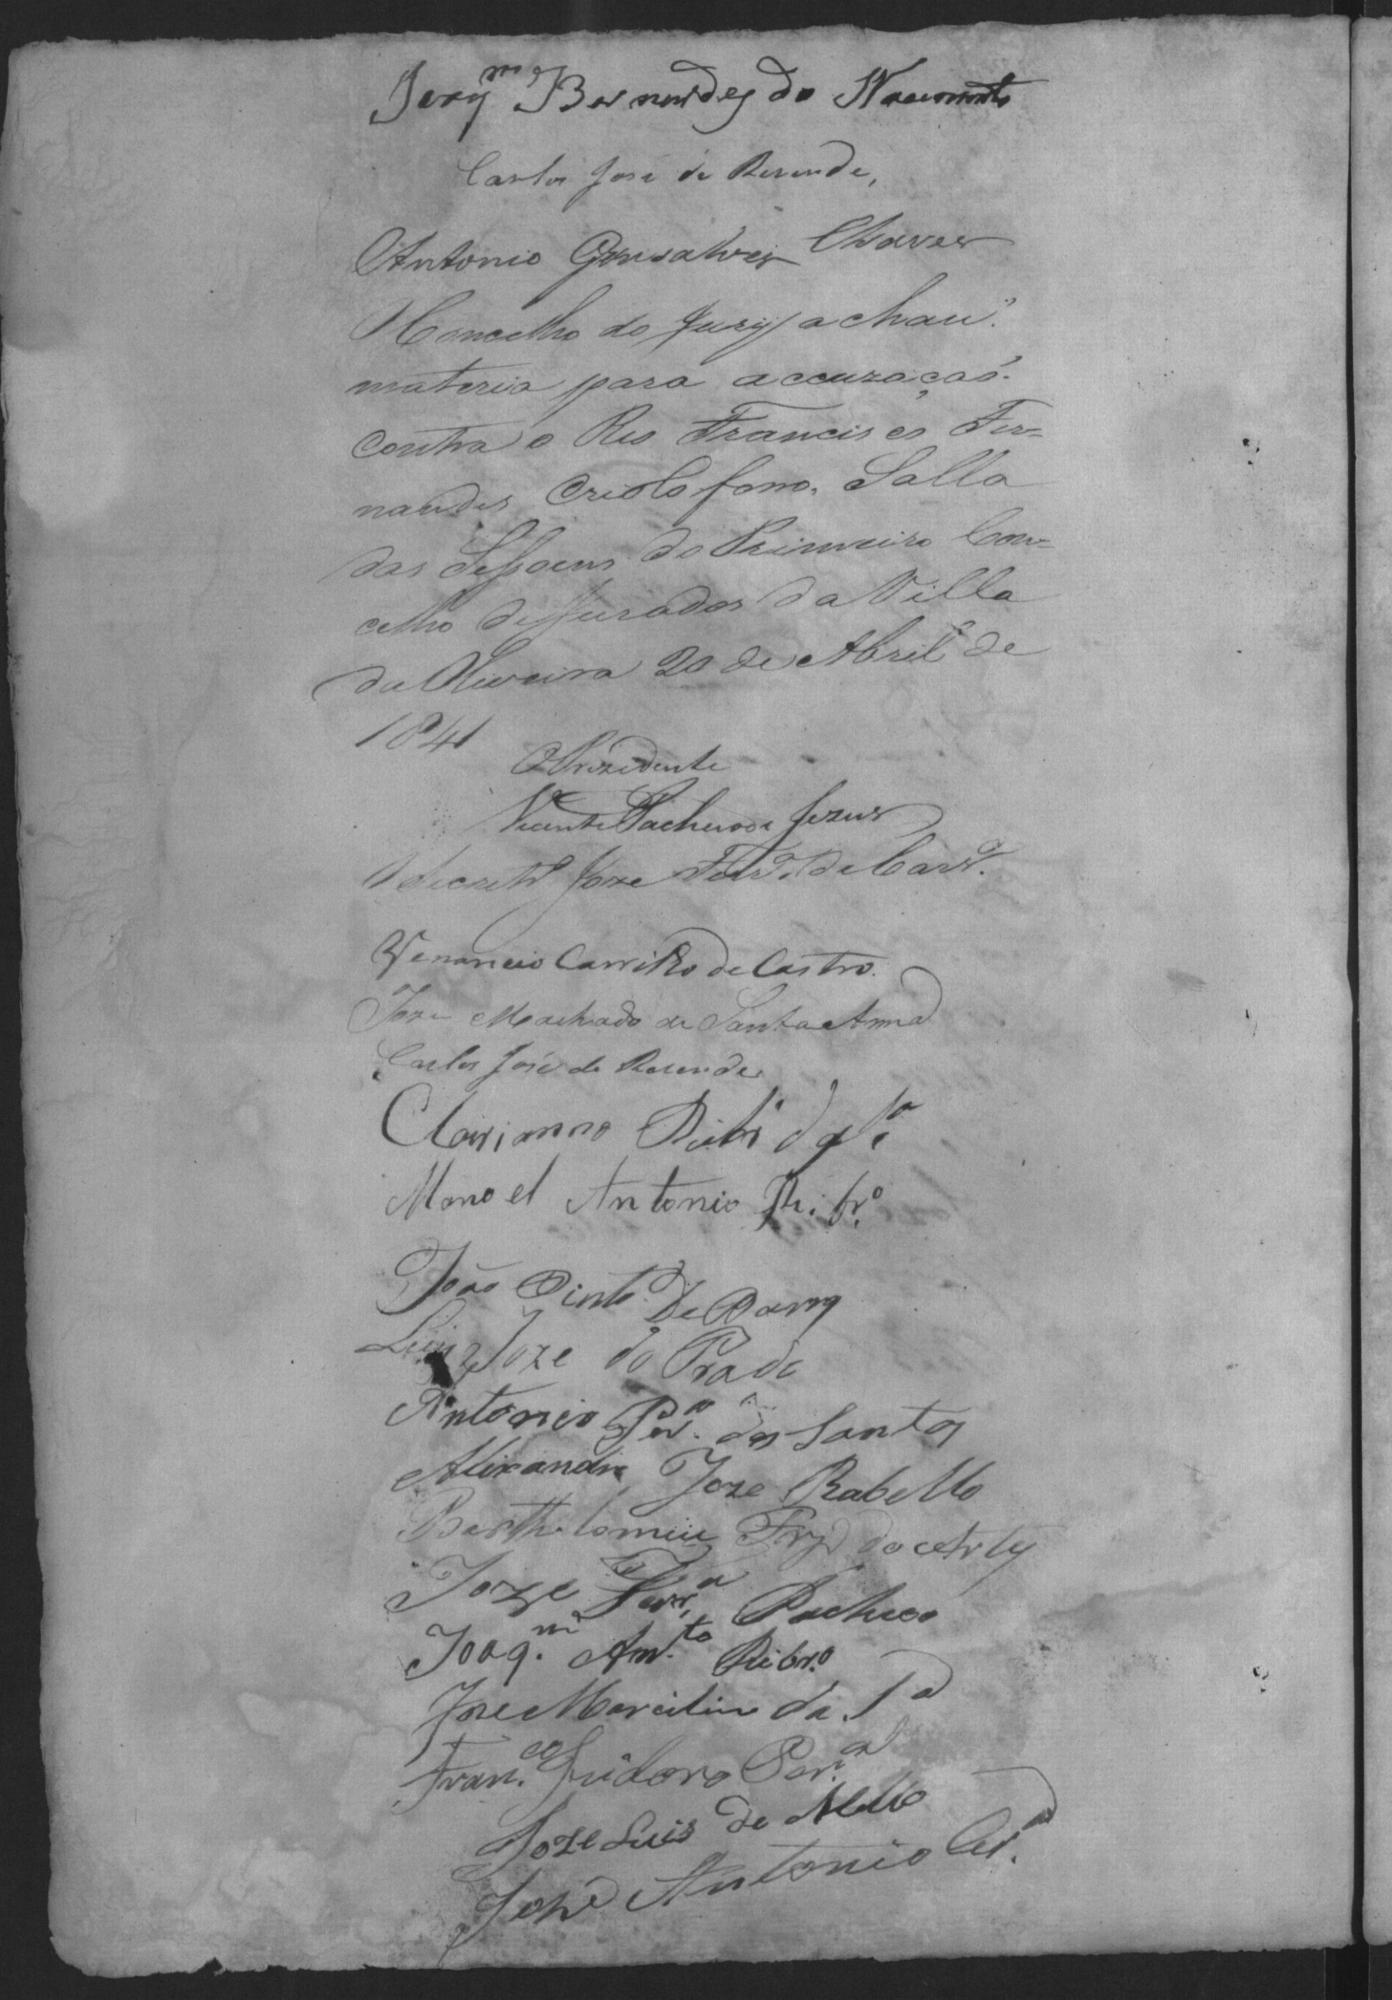 Jerym.o Bernardes do Nacimento
Carlos José de Resende,
Antonio Gonsalves Chaves
O Concelho do Jury achou
materia para accuzaçaõ
contra o Reo Francisco Fer=
nandes Criolo forro. Salla
das Sessoens do Primeiro Con=
celho de Jurados da Villa
da Oliveira 20 de Abril de
1841
O Prezidente
Vicente Pacheco de Jezus
O Secretr.o Joze Ferr.a de Carv.o
Venancio Carrilho de Castro.
Joze Machado de Santa Anna
Carlos José de Resende
Marianno Ribr.o da S.a
Manoel Antonio Ri.br.o
João Pinto De Barros
Luiz Joze do Prado
Antonio Per.a dos Santos
Alixandre Joze Rabello
Bertholomeu
Joze Ferr.a Pacheco
Joaq.m Ant.to Ribr.o
Joze Marcilino da S.a
Fran.co Izidoro Per.a
Joze Luis de Mello
José Antonio